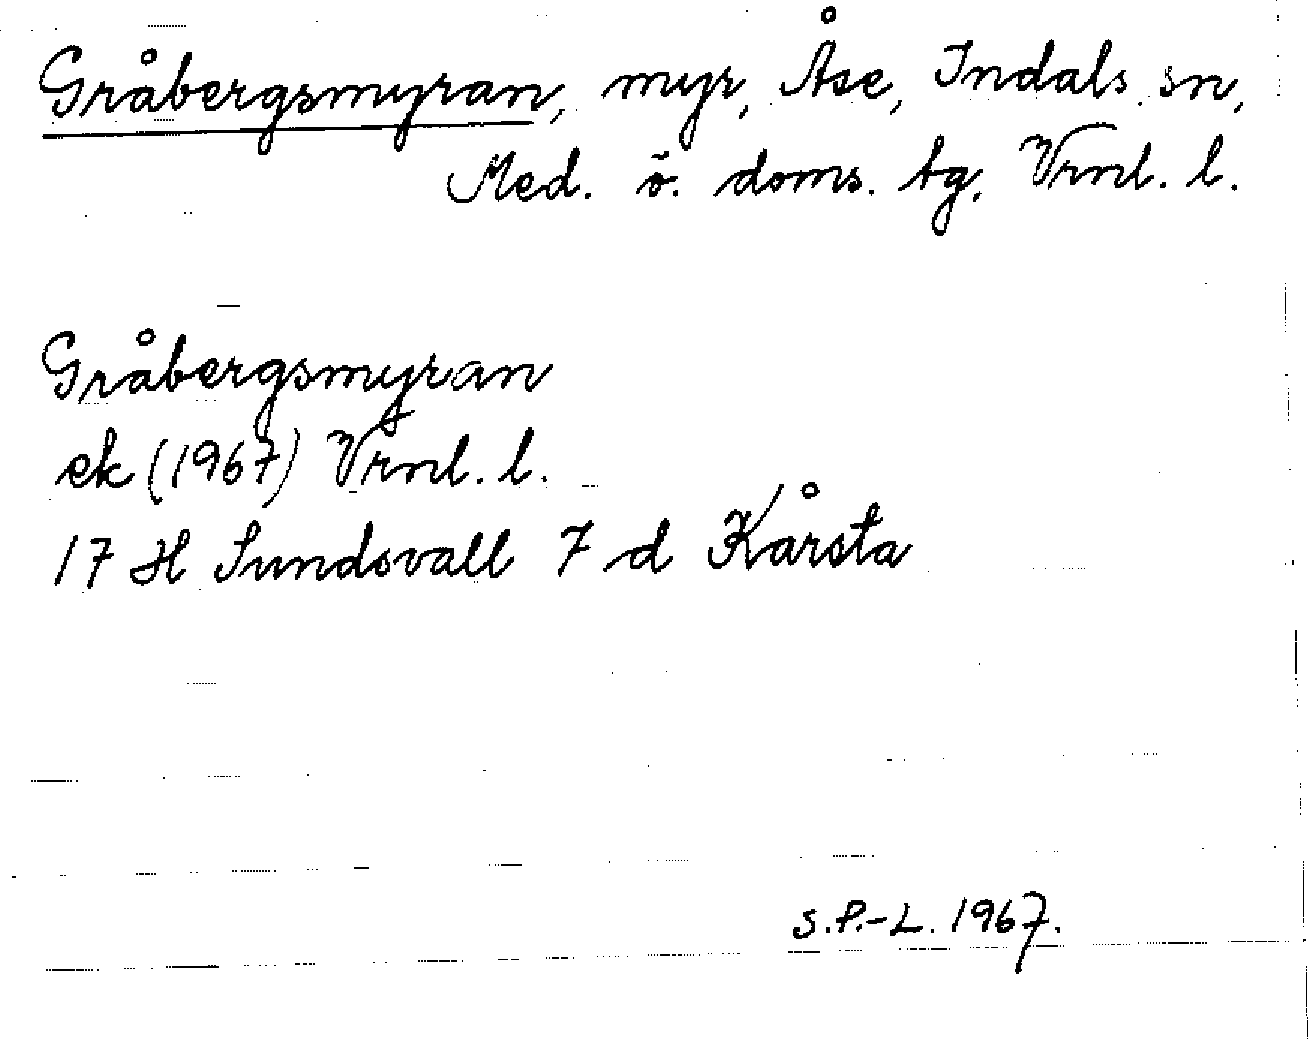 Gråbergsmyran, myr, Åse, Indals sn,
Med. ö. doms. tg, Vrnl. l.
Gråbergsmyran
ek (1967) Vrnl. l.
17 H Sundsvall 7 d Kårsta
S.P.-L. 1967.